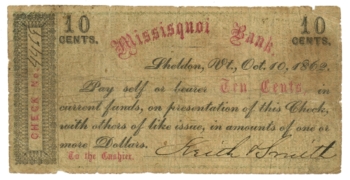 10 CENTS.
Missisquoi Bank
10 CENTS.
Sheldon, Vt., Oct. 10, 1862.
Pay self or bearer Ten Cents, in
current funds, on presentation of this Check,
with others of like issue, in amounts of one or
more Dollars.
To the Cashier.
Keith & Smith
CHECK No.